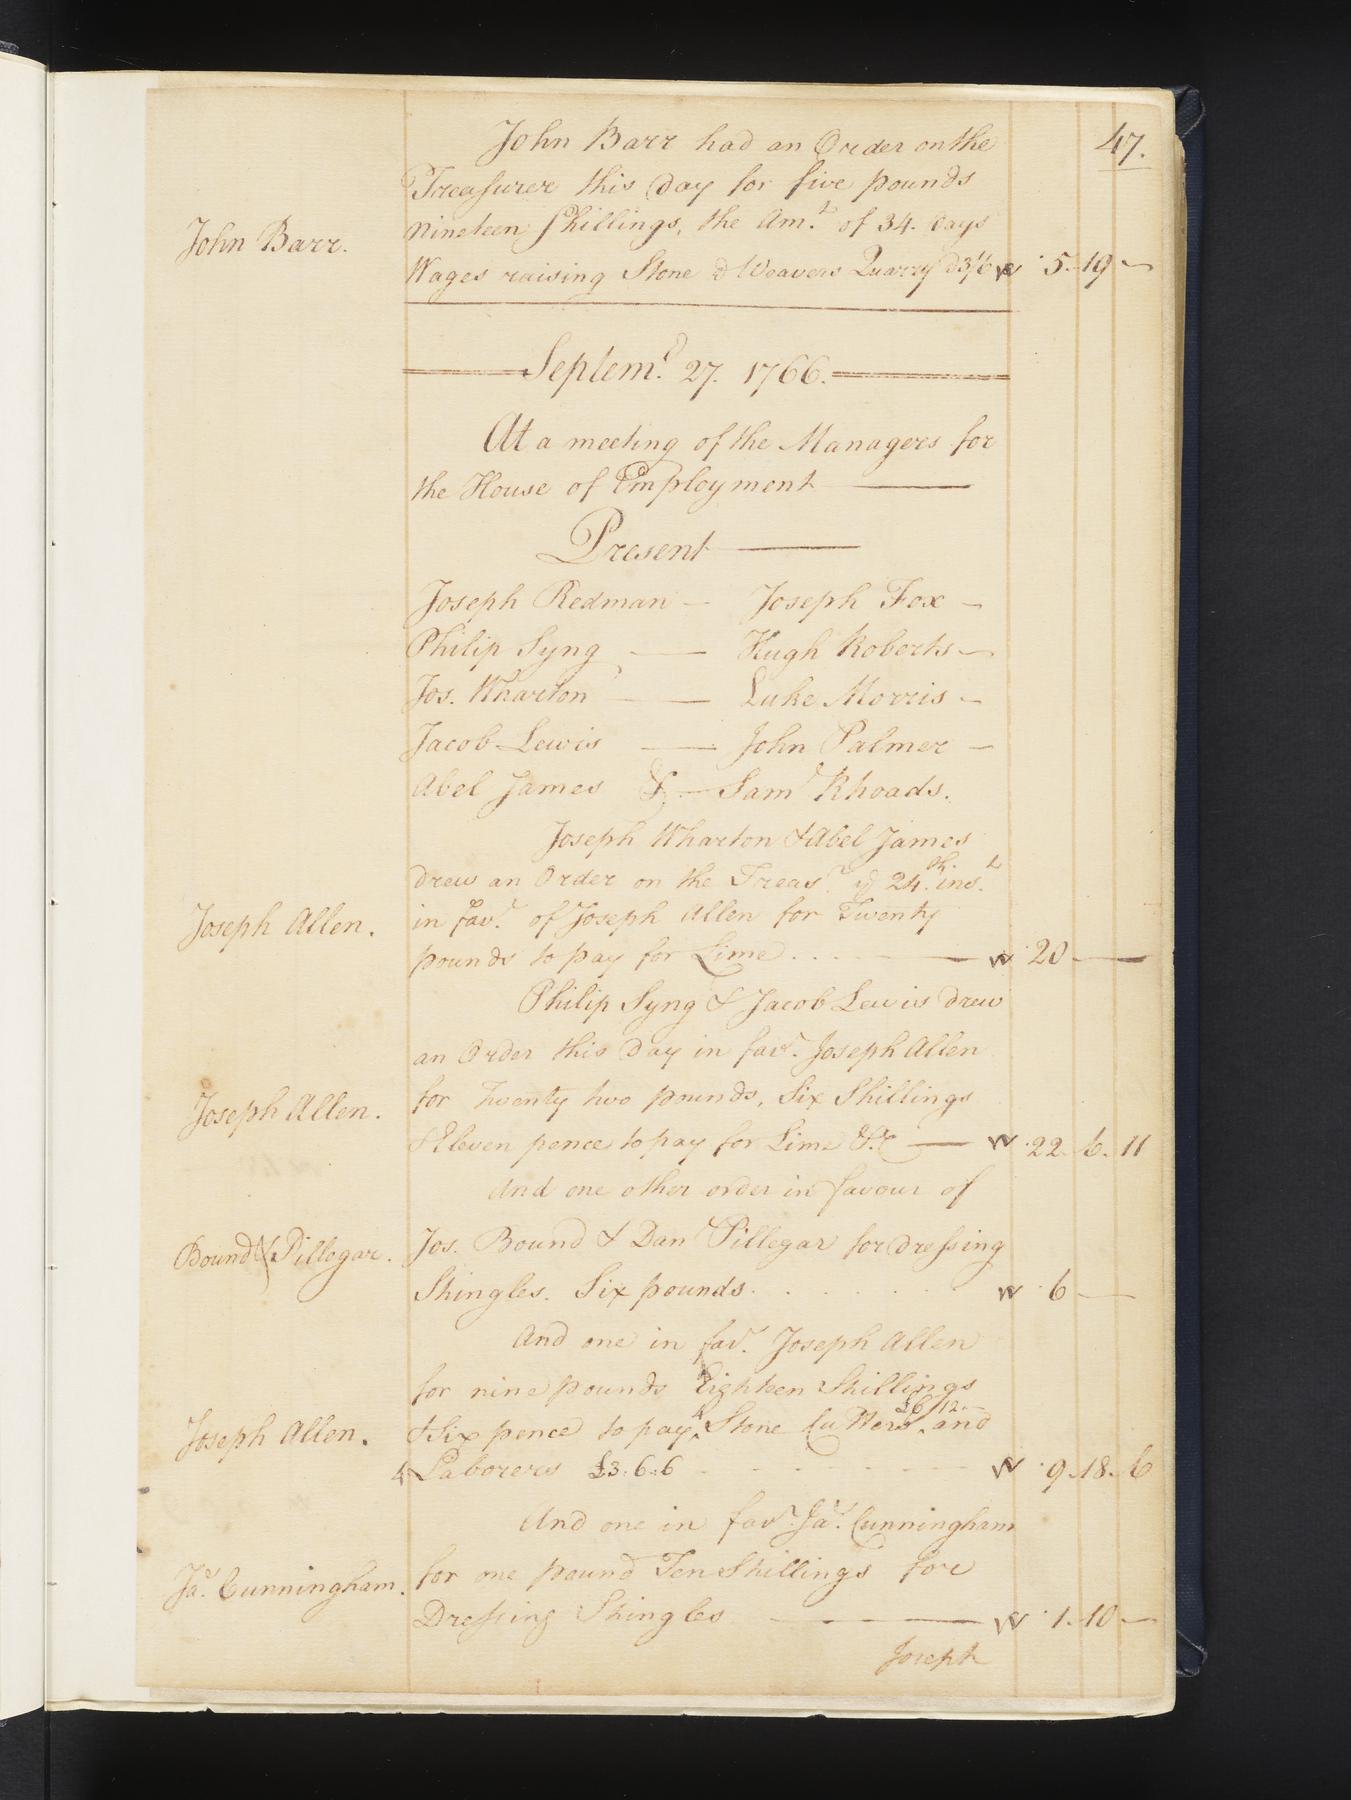 47.
John Barr had an Order on the
Treasurer this Day for five pounds
John Barr.
Nineteen Shillings, the Amt. of 34. Days
Wages raising Stone @ Weavers Quarry @ 3/6 5.. 19 —
Septemr. 27. 1766.
At a meeting of the Managers for
the House of Employment
Present
Joseph Redman — Joseph Fox —
Philip Syng — Hugh Roberts —
Jos. Wharton — Luke Morris —
Jacob Lewis — John Palmer —
Abel James & — Saml Rhoads.
Joseph Wharton & Abel James
drew an Order on the Treasr. ye 24th. inst.
Joseph Allen.
in favr. of Joseph Allen for Twenty
pounds to pay for Lime . . . — W 20 —
Philip Syng & Jacob Lewis drew
an Order this Day in favr. Joseph Allen
Joseph Allen.
for Twenty two pounds, Six Shillings
& Eleven pence to pay for Lime &c — W 22. 6. 11
And one other order in favour of
Bound & Pillegar.
Jos. Bound & Danl Pillegar for dressing
Shingles. Six pounds . . . W 6 —
And one in favr. Joseph Allen
for nine pounds Eighteen Shillings
Joseph Allen.
& Six pence to pay 4 Stone Cutters £6/12.. and
4 Laborers £3.6.6 — W 9. 18. 6
And one in favr. Jas. Cunningham
Jas. Cunningham.
for one pound Ten Shillings for
Dressing Shingles — W 1. 10 —
Joseph